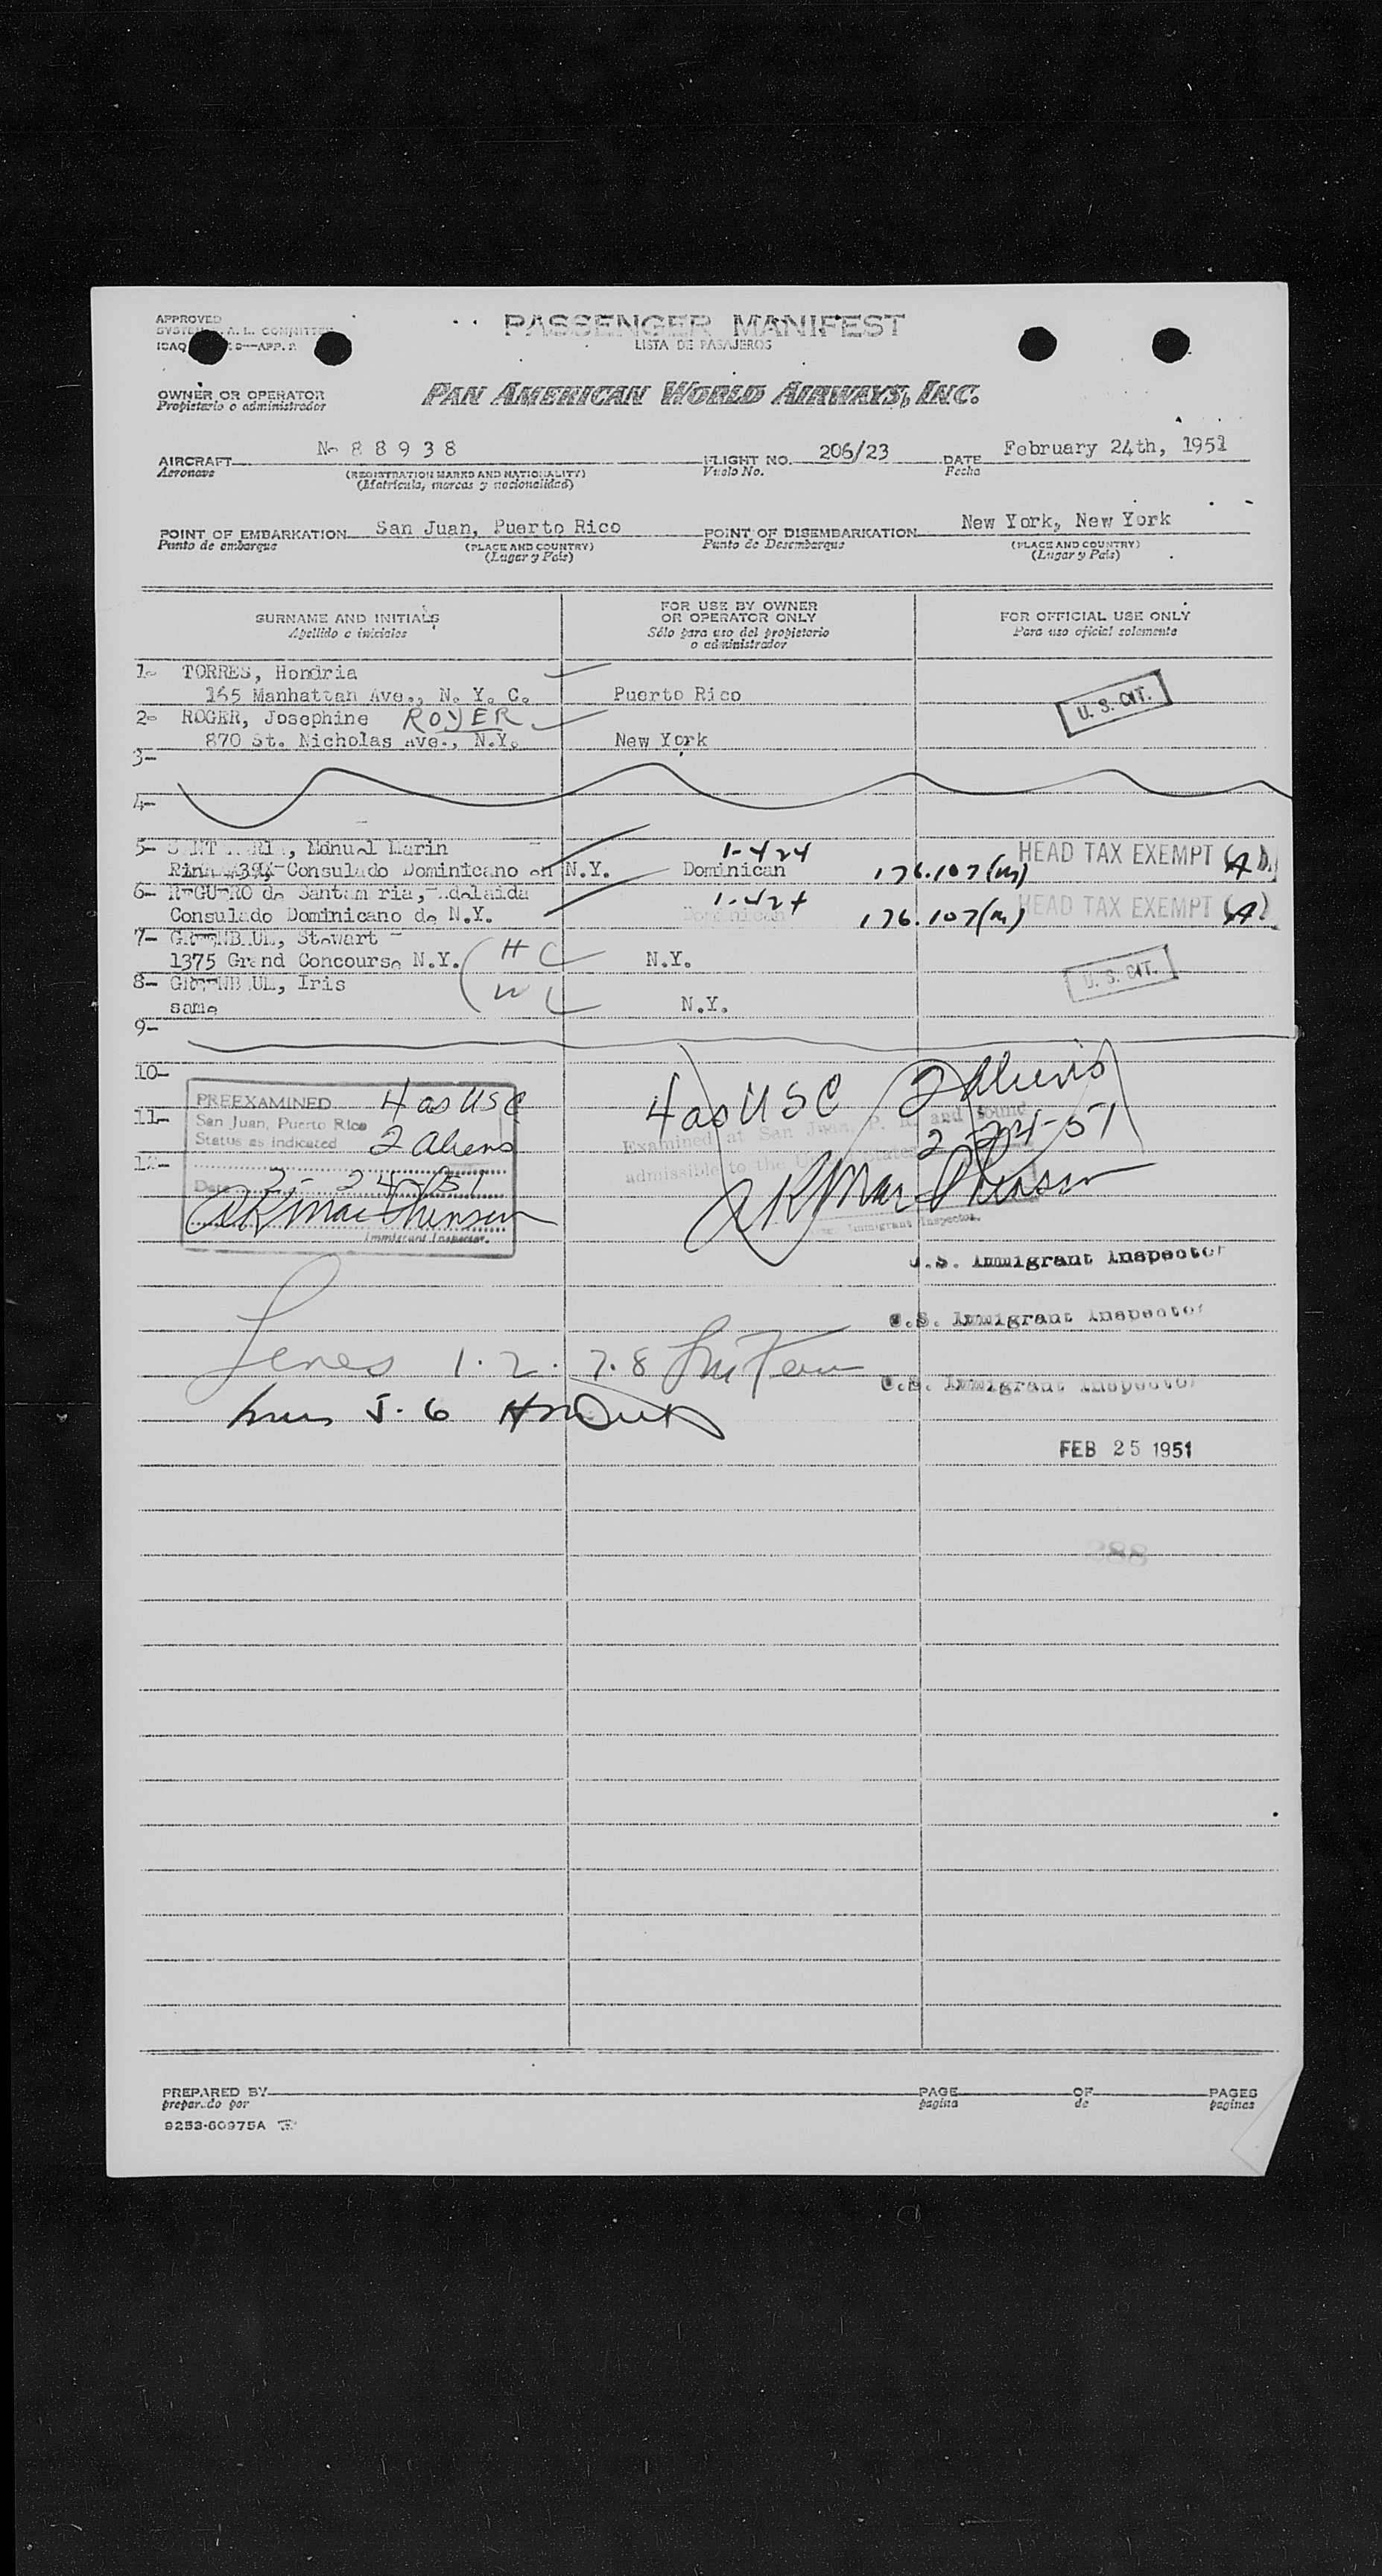 APPROVED
PASSENGER MANIFEST
LISTA DE PASAJEROS
OWNER OR OPERATOR
Propietario o administrador
PAN AMERICAN WORLD AIRWAYS, INC.
AIRCRAFT N- 8 8 9 3 8 FLIGHT NO. 206/23 DATE February 24th, 1951
Aeronave (REGISTRATION MARKS AND NATIONALITY) Vuelo No. Fecha
(Matricula, marcas y nacionalidad)
POINT OF EMBARKATION San Juan, Puerto Rico POINT OF DISEMBARKATION New York, New York
Punto de embarque (PLACE AND COUNTRY) Punto de Desembarque (PLACE AND COUNTRY)
(Lugar y País) (Lugar y País)
SURNAME AND INITIALS FOR USE BY OWNER OR OPERATOR ONLY FOR OFFICIAL USE ONLY
Apellido e iniciales Sólo para uso del propietario o administrador Para uso oficial solamente
1- TORRES, Hondria
165 Manhattan Ave., N. Y. C. Puerto Rico U. S. CIT.
2- ROGER, Josephine ROYER
870 St. Nicholas Ave., N.Y. New York
3-
4-
5- Manuel Marin 1-424 HEAD TAX EXEMPT (A)
Consulado Dominicano en N.Y. Dominican 176.107(m)
6- de 1-424 HEAD TAX EXEMPT (A)
Consulado Dominicano de N.Y. Dominican 176.107(m)
7- GREENBAUM, Stewart H C
1375 Grand Concourse N.Y. N.Y. U. S. CIT.
8- GREENBAUM, Iris W C
same N.Y.
9-
10-
11-
12-
PREEXAMINED 4 as USC
San Juan, Puerto Rico
Status as indicated 2 Aliens
Date 2-24-51
Immigrant Inspector.
4 as USC 2 Aliens
Examined at San Juan, P. R. and found
admissible to the United States 2-24-51
Immigrant Inspector.
U.S. Immigrant Inspector
U.S. Immigrant Inspector
Lines 1. 2. 7. 8
U.S. Immigrant Inspector
Lines 5. 6
FEB 25 1951
288
PREPARED BY PAGE OF PAGES
preparado por pagina de paginas
9253-60975A